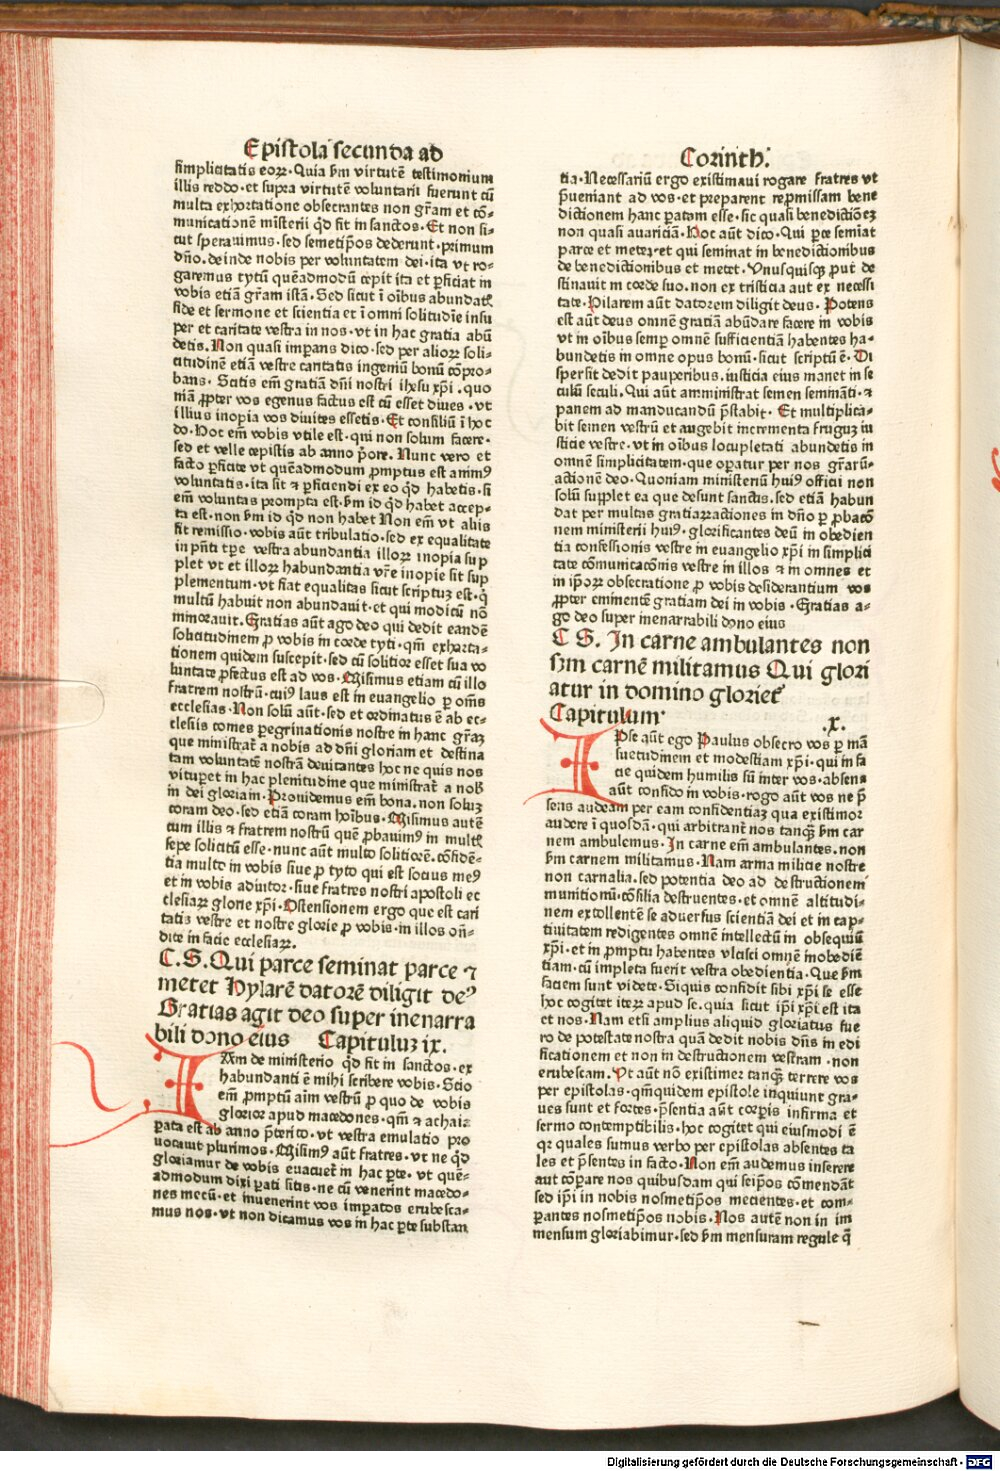 Epistola secunda ad
simplicitatis eoꝝ. Quia s̄m virtutē testimonium
illis reddo. et supra virtutē voluntarii fuerunt cū
multa exhortatione obsecrantes non gr̄am et cō-
municationē mīsterii qd̄ fit in sanctos. Et non si-
cut sperauimus. sed semetip̄os dederunt. primum
dn̄o. deinde nobis per voluntatem dei. ita vt ro-
garemus tytū quēadmodū cepit ita et ꝑficiat in
vobis etiā gr̄am istā. Sed sicut ī oībus abundatꝭ
fide et sermone et scientia et ī omni solitudīe insu
per et caritate vestra in nos. vt in hac gratia abū
detis. Non quasi imꝑans dico. sed per alioꝝ soli-
citudinē etiā vestre caritatis ingeniū bonū cōpro-
bans. Scitis em̄ gratiā dn̄i nostri ihesu xp̄i. quo
niā ꝓpter vos egenus factus est cū esset diues. vt
illius inopia vos diuites essetis. Et consiliū ī hoc
do. Hoc em̄ vobis vtile est. qui non solum facere.
sed et velle cepistis ab anno p̄ore. Nunc vero et
facto ꝑficite vt quēadmodum ꝓmptus est animꝰ
voluntatis. ita sit ⁊ ꝑficiendi ex eo qd̄ habetis. si
em̄ voluntas prompta est. s̄m id qd̄ habet accep-
ta est. non s̄m id qd̄ non habet Non em̄ vt aliis
sit remissio. vobis aūt tribulatio. sed ex equalitate
in pn̄ti tꝑe vestra abundantia illoꝝ inopia sup
plet vt et illoꝝ habundantia vr̄e inopie sit sup
plementum. vt fiat equalitas sicut scriptuꝫ est. q̇
multū habuit non abundauit. et qui modicū nō
minorauit. Gratias aūt ago deo qui dedit eandē
solicitudinem ꝓ vobis in corde tyti. qm̄ exhorta-
tionem quidem suscepit. sed cū solitior esset sua vo
luntate ꝓfectus est ad vos. Misimus etiam cū illo
fratrem nostrū. cuiꝰ laus est in euangelio ꝑ om̄s
ecclesias. Non solū aūt. sed et ordinatus ē ab ec-
clesiis comes peregrinationis nostre in hanc gr̄aꝫ
que ministrat᷑ a nobis ad dn̄i gloriam et destina
tam voluntatē nostrā deuitantes hoc ne quis nos
vituꝑet in hac plenitudine que ministrat᷑ a nob̄
in dei gloriam. Prouidemus em̄ bona. non soluꝫ
coram deo. sed etiā coram hoībus. Misimus autē
cum illis ⁊ fratrem nostrū quē ꝓbauimꝰ in multꝭ
sepe solicitū esse. nunc aūt multo solitiorē. cōfidē-
tia multo in vobis siue ꝓ tyto qui est socius meꝰ
et in vobis adiutor. siue fratres nostri apostoli ec
clesiaꝝ glorie xp̄i. Ostensionem ergo que est cari
tatis vestre et nostre glorie ꝓ vobis. in illos on̄-
dite in facie ecclesiaꝝ.
C. S. Qui parce seminat parce ⁊
metet Hylarē datorē diligit deꝰ
Gratias agit deo super inenarra
bili dono eius Capituluꝫ ix.
NAm de ministerio qd̄ fit in sanctos. ex
habundanti ē mihi scribere vobis. Scio
em̄ ꝓmptū aīm vestrū ꝓ quo de vobis
glorior apud macedones. qm̄ ⁊ achaia
ꝑata est ab anno p̄terito. vt vestra emulatio pro
uocauit plurimos. Misimꝰ aūt fratres. vt ne qd̄
gloriamur de vobis euacuet᷑ in hac ꝑte. vt quē-
admodum dixi ꝑati sitis. ne cū venerint macedo-
nes mecū. et inuenerint vos imꝑatos erubesca-
mus nos. vt non dicamus vos in hac ꝑte substan
Corinth.
tia. Necessariū ergo existimaui rogare fratres vt
p̄ueniant ad vos. et preparent repromissam bene
dictionem hanc ꝑatam esse. sic quasi benedictiōeꝫ
non quasi auariciā. Hoc aūt dico. Qui ꝑce semīat
parce et metet. et qui seminat in benedictionibus
de benedictionibus et metet. Vnusquisqꝫ put̄ de
stinauit in corde suo. non ex tristicia aut ex necessi
tate. Hilarem aūt datorem diligit deus. Potens
est aūt deus omnē gratiā abūdare facere in vobis
vt in oībus semꝑ omnē sufficientiā habentes ha-
bundetis in omne opus bonū. sicut scriptū ē. Di
spersit dedit pauperibus. iusticia eius manet in se
culū seculi. Qui aūt amministrat semen semināti. ⁊
panem ad manducandū p̄stabit. Et multiplica-
bit semen vestrū et augebit incrementa frugum iu
sticie vestre. vt in oībus locupletati abundetis in
omnē simplicitatem. que oꝑatur per nos gr̄arū-
actionē deo. Quoniam ministeriū huiꝰ officii non
solū supplet ea que desunt sanctis. sed etiā habun
dat per multas gratiaꝝactiones in dn̄o ꝑ ꝓbatō
nem ministerii huiꝰ. glorificantes deū in obedien
tia confessionis vestre in euangelio xp̄i in simplici
tate cōmunicacōnis vestre in illos ⁊ in omnes et
in ip̄oꝝ obsecratione ꝓ vobis desiderantium vos
ꝓpter eminentē gratiam dei in vobis. Gratias a-
go deo super inenarrabili dono eius
C S. In carne ambulantes non
sꝫm carnē militamus Qui glori
atur in domino gloriet᷑
Capitulum .x.
IPse aūt ego Paulus obsecro vos ꝑ mā
suetudinem et modestiam xp̄i. qui in fa
cie quidem humilis sū inter vos. absens
aūt confido in vobis. rogo aūt vos ne p̄
sens audeam per eam confidentiaꝫ qua existimor
audere ī quosdā. qui arbitrant᷑ nos tanqꝫ s̄m car
nem ambulemus. In carne em̄ ambulantes. non
s̄m carnem militamus. Nam arma milicie nostre
non carnalia. sed potentia deo ad destructionem
munitionū. cōsilia destruentes. et omnē altitudi-
nem extollentē se aduersus scientiā dei et in cap-
tiuitatem redigentes omnē intellectū in obsequiū
xp̄i. et in ꝓmptu habentes vlcisci omnē inobediē
tiam. cū impleta fuerit vestra obedientia. Que s̄m
faciem sunt videte. Siquis confidit sibi xp̄i se esse
hoc cogitet iteꝝ apud se. quia sicut ip̄i xp̄i est ita
et nos. Nam etsi amplius aliquid gloriatus fue
ro de potestate nostra quā dedit nobis dn̄s in edi
ficationem et non in destructionem vestram. non
erubescam. Vt aūt nō existimer tanqꝫ terrere vos
per epistolas. qm̄quidem epistole inquiunt gra-
ues sunt et fortes. p̄sentia aūt corꝑis infirma et
sermo contemptibilis. hoc cogitet qui eiusmodi ē
qꝛ quales sumus verbo per epistolas absentes ta
les et p̄sentes in facto. Non em̄ audemus inserere
aut cōꝑare nos quibusdam qui seip̄os cōmendāt
sed ip̄i in nobis nosmetip̄os metientes. et com-
ꝑantes nosmetip̄os nobis. Nos autē non in im
mensum gloriabimur. sed s̄m mensuram regule q̄
Digitalisierung gefördert durch die Deutsche Forschungsgemeinschaft - DFG